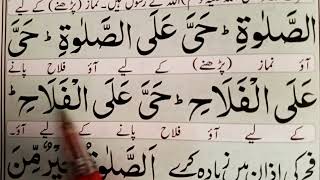 اللہ کے رسول ہیں۔ نماز (پڑھنے) کے لیے
الصَّلٰوةِ ؕ حَیَّ عَلَی الصَّلٰوةِ ؕ حَیَّ
آؤ نماز (پڑھنے) کے لیے آؤ فلاح پانے
عَلَی الْفَلَاحِ ؕ حَیَّ عَلَی الْفَلَاحِ ؕ
کے لیے آؤ فلاح پانے کے لیے آؤ۔
فجر کی اذان میں زیادہ کرے اَلصَّلٰوةُ خَیْرٌ مِّنَ